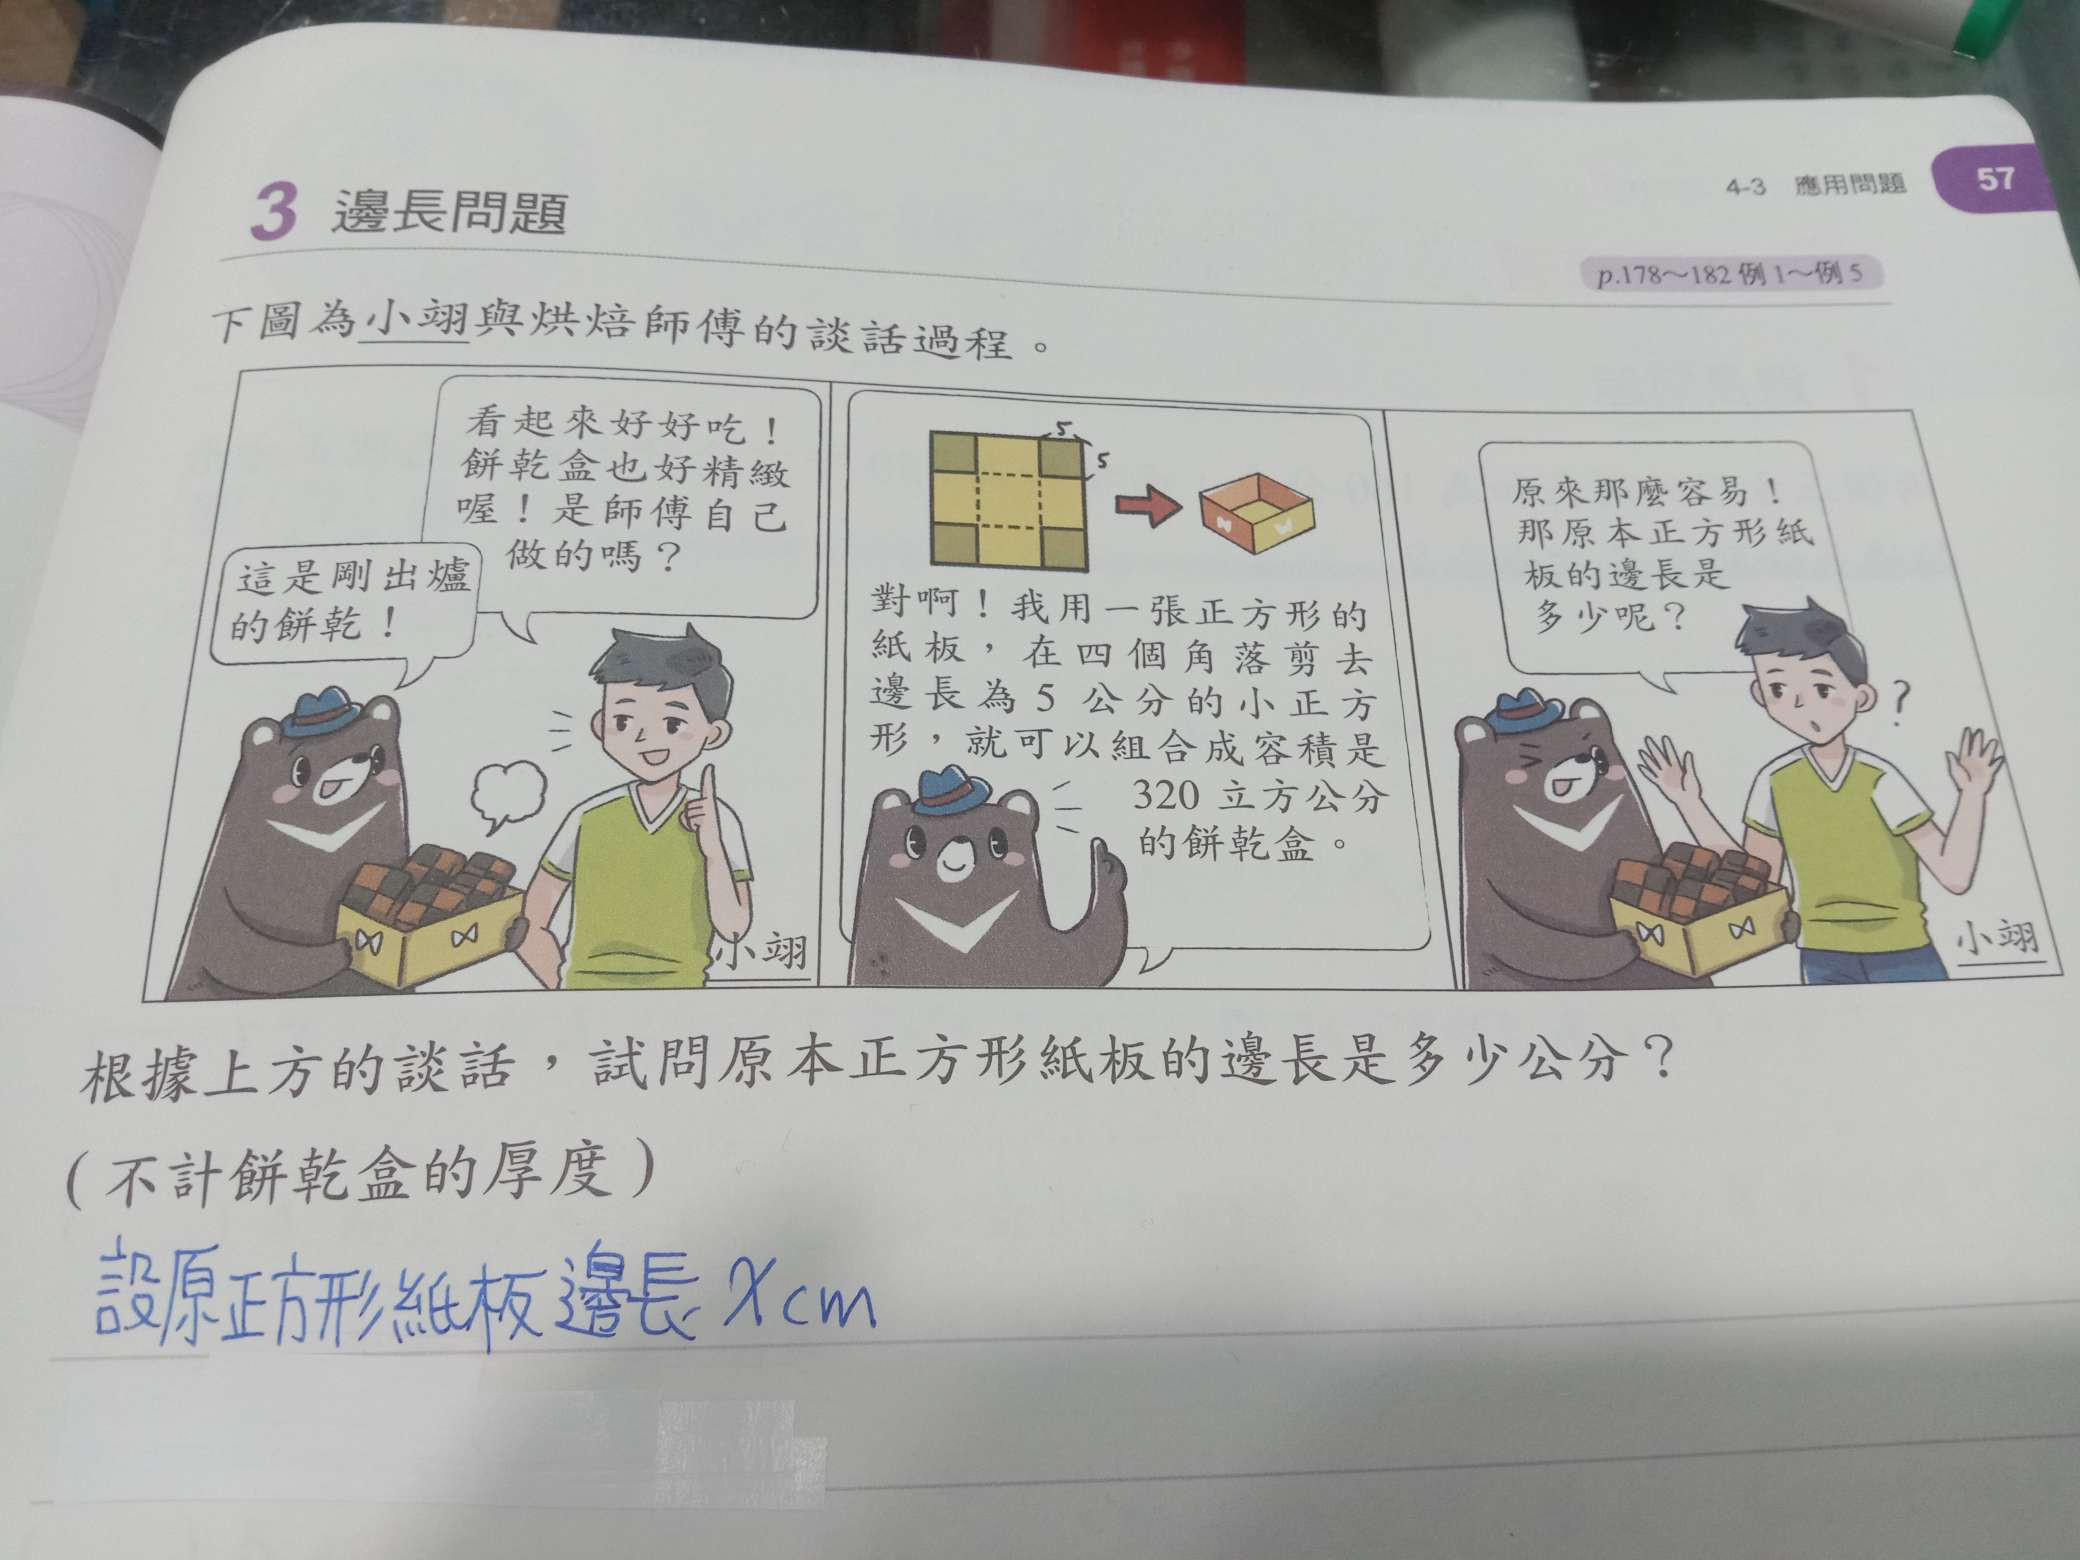 4-3 應用問題 57
3 邊長問題
p.178～182 例 1～例 5
下圖為小翊與烘焙師傅的談話過程。
看起來好好吃！
餅乾盒也好精緻
喔！是師傅自己
做的嗎？
這是剛出爐
的餅乾！
小翊
5
5
對啊！我用一張正方形的
紙板，在四個角落剪去
邊長為 5 公分的小正方
形，就可以組合成容積是
320 立方公分
的餅乾盒。
原來那麼容易！
那原本正方形紙
板的邊長是
多少呢？
?
小翊
根據上方的談話，試問原本正方形紙板的邊長是多少公分？
（不計餅乾盒的厚度）
設原正方形紙板邊長 x cm